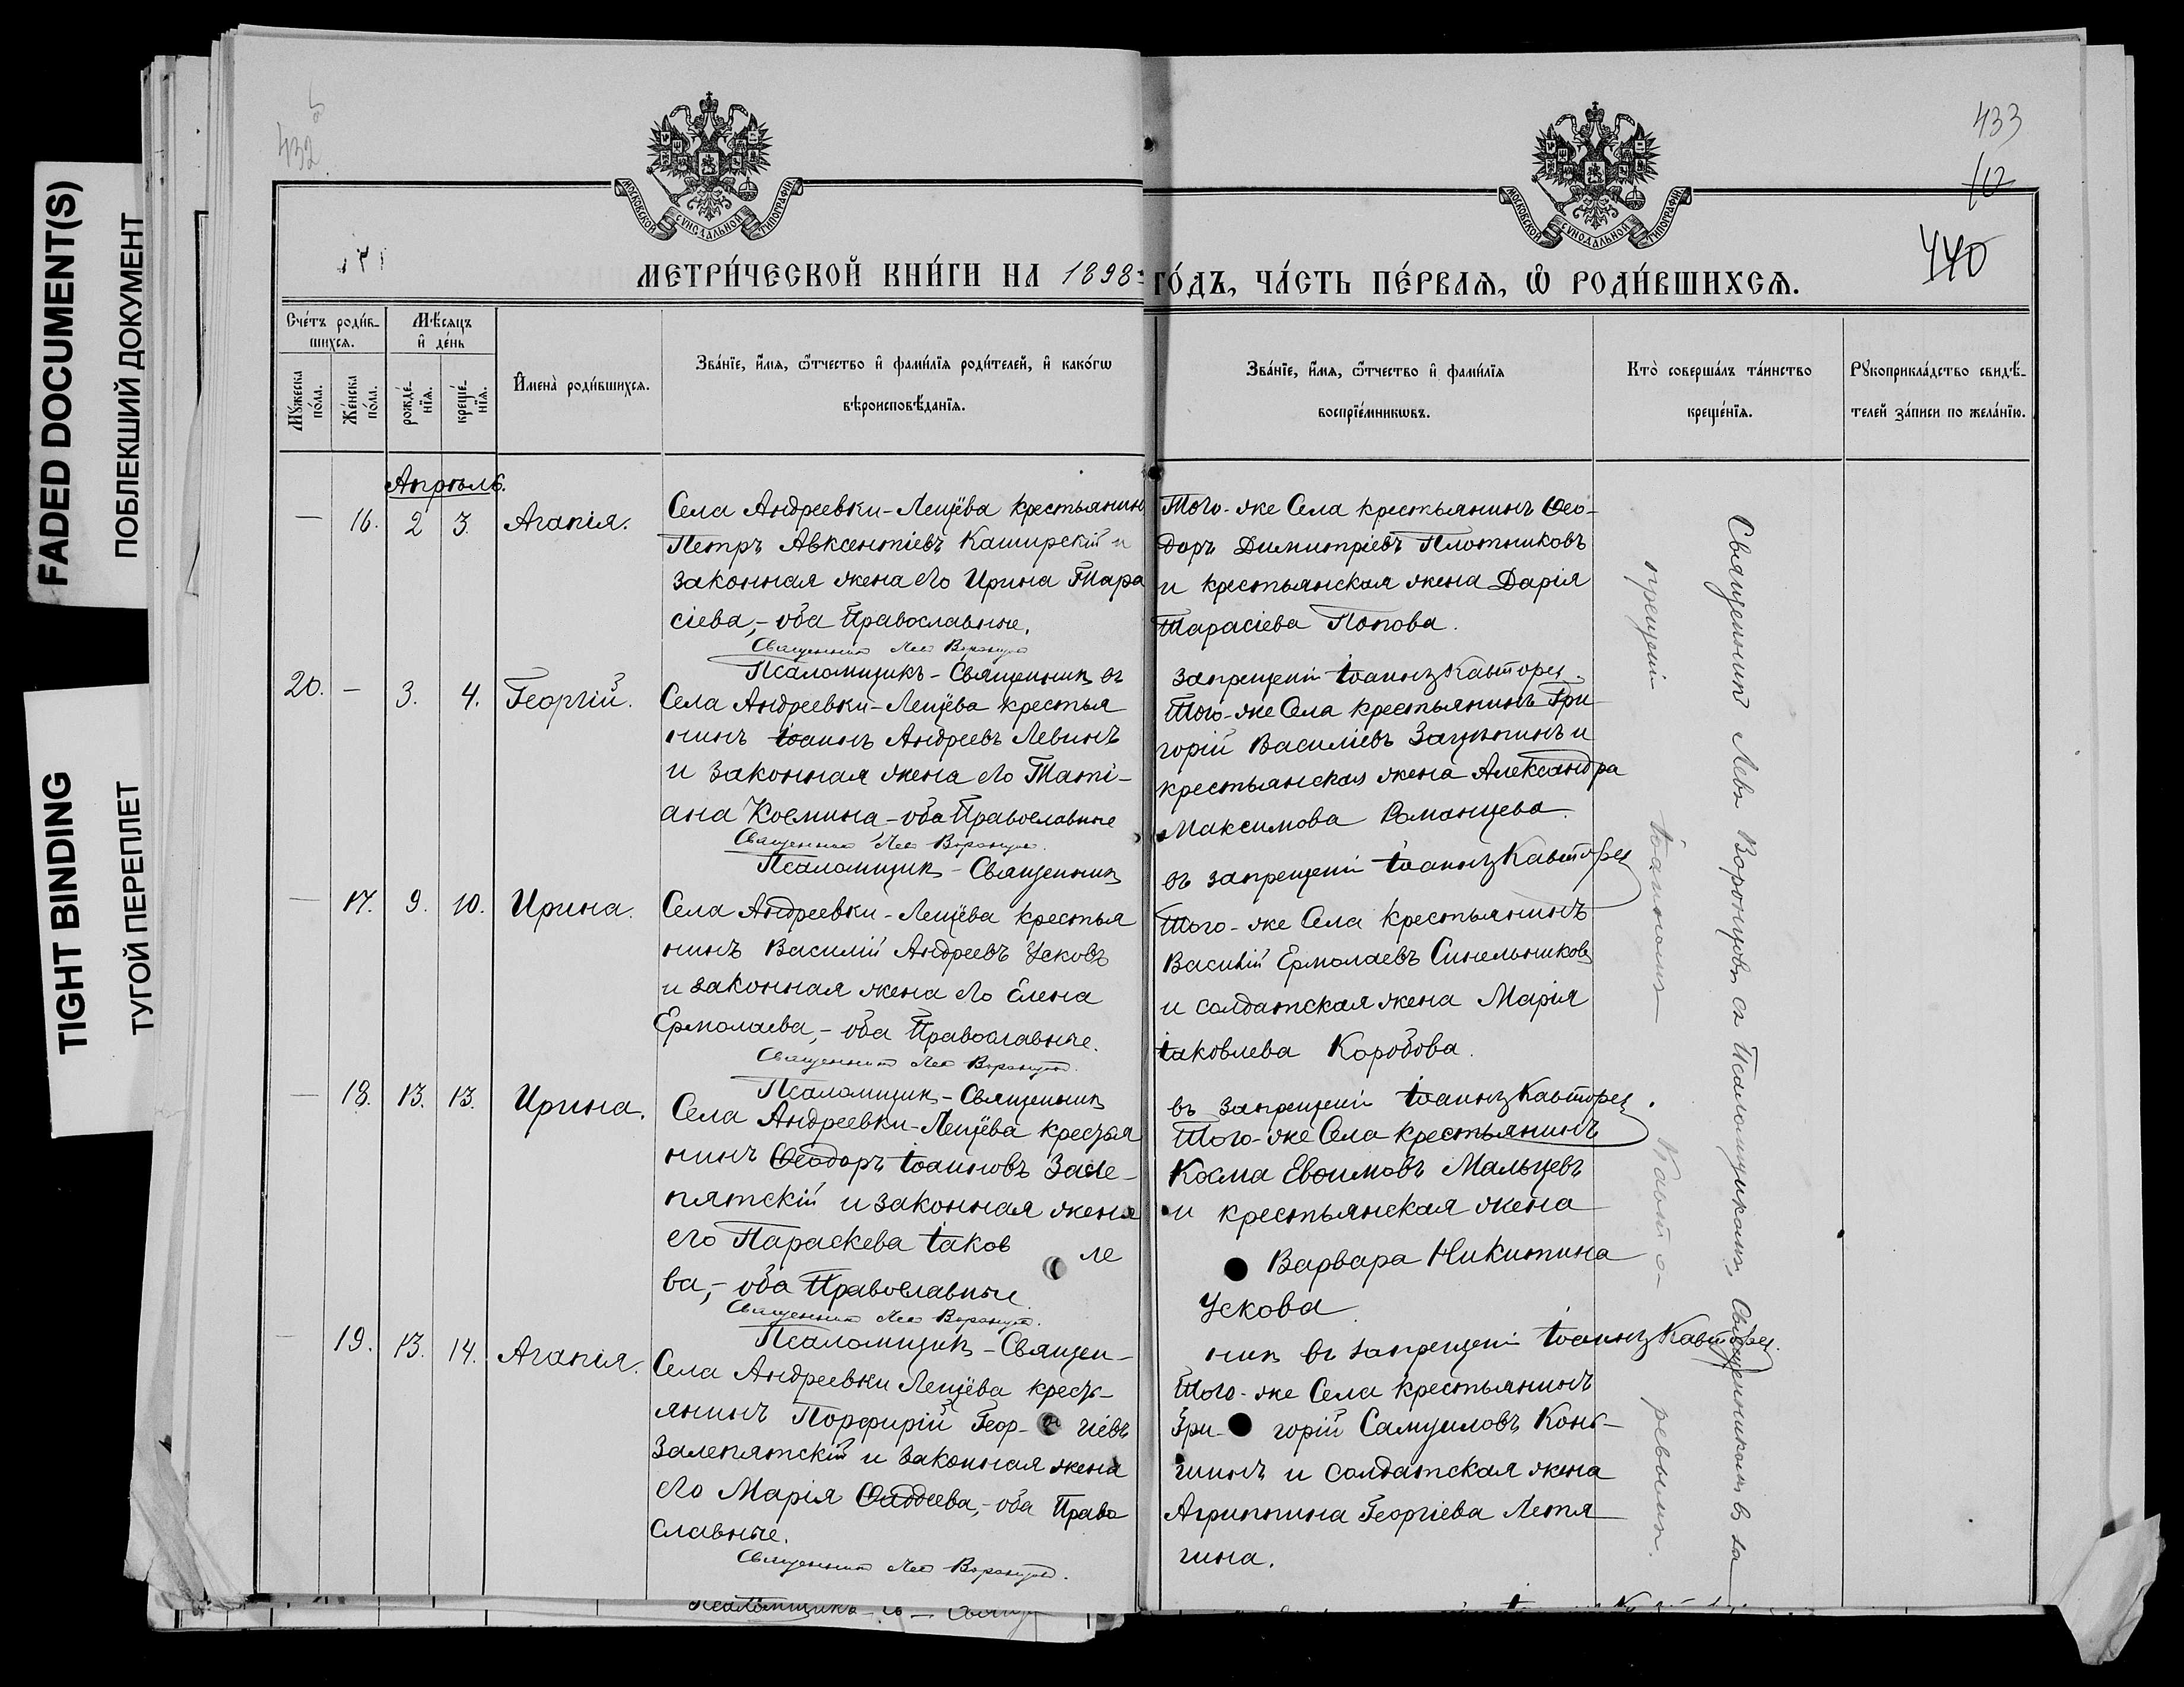 FADED DOCUMENT(S)
ПОБЛЕКШИЙ ДОКУМЕНТ
TIGHT BINDING
ТУГОЙ ПЕРЕПЛЕТ
432
433
440
МОСКОВСКОЙ СУНОДАЛЬНОЙ ТИПОГРАФІИ
МОСКОВСКОЙ СУНОДАЛЬНОЙ ТИПОГРАФІИ
МЕТРИ́ЧЕСКОЙ КНИ́ГИ НА 1898 ГО́ДЪ, ЧА́СТЬ ПЕ́РВАѦ, Ѡ РОДИ́ВШИХСѦ.
Сче́тъ роди́в-
шихсѧ.
Мꙋжеска по́ла.
Же́нска по́ла.
Мѣ́сяцъ и де́нь
рожде́-
нїѧ.
креще́-
нїѧ.
Имена̀ роди́вшихсѧ.
Зва́нїе, и́мѧ, ѻ́тчество и фами́лїѧ роди́телей, и како́гѡ
вѣроисповѣ́данїѧ.
Зва́нїе, и́мѧ, ѻ́тчество и фами́лїѧ
воспрїе́мникѡвъ.
Кто̀ соверша́лъ та́инство
креще́нїѧ.
Рꙋкоприкла́дство свидѣ́-
телей за́писи по жела́нїю.
Апрѣль.
— 16. 2 3. Агапія.
Села Андреевки-Лещёва крестьянинъ
Петръ Авксентіевъ Каширскій и
законная жена его Ирина Тара
сіева,- оба Православные.
Священникъ Левъ Воронцовъ
Того-же Села крестьянинъ Ѳео-
доръ Димитріевъ Плотниковъ
и крестьянская жена Дарія
Тарасіева Попова.
Псаломщикъ - Священникъ въ запрещеніи Іоаннъ Кавторев
20. — 3. 4. Георгій.
Села Андреевки-Лещёва крестья
нинъ Іоаннъ Андреевъ Левинъ
и законная жена его Таті-
ана Космина - оба Православные
Священникъ Левъ Воронцовъ.
Того-же Села крестьянинъ Гри
горій Василіевъ Зацѣпинъ и
крестьянская жена Александра
Максимова Романцева.
Псаломщикъ - Священникъ въ запрещеніи Іоаннъ Кавторев
— 17. 9. 10. Ирина.
Села Андреевки-Лещёва крестья
нинъ Василій Андреевъ Усковъ
и законная жена его Елена
Ермолаева,- оба Православные.
Священникъ Левъ Воронцовъ.
Того-же Села крестьянинъ
Василій Ермолаевъ Синельниковъ
и солдатская жена Марія
Іаковлева Коробова.
Псаломщикъ - Священникъ въ запрещеніи Іоаннъ Кавторев
— 18. 13. 13. Ирина.
Села Андреевки-Лещёва кресья
нинъ Ѳеодоръ Іоанновъ Зале-
пятскій и законная жена
его Параскева Іаков ле
ва,- оба Православные
Священникъ Левъ Воронцовъ.
Того-же Села крестьянинъ
Косма Евѳимовъ Мальцевъ
и крестьянская жена
Варвара Никитина
Ускова
Псаломщикъ - Священ-
никъ въ запрещеніи Іоаннъ Кавторев.
— 19. 13. 14. Агапія.
Села Андреевки Лещёва кресть-
янинъ Порфирій Геор- гіевъ
Залепятскій и законная жена
его Марія Ѳаддеева,- оба Право
славные.
Священникъ Левъ Воронцовъ.
Того-же Села крестьянинъ
Гри- горій Самуиловъ Коня-
гинъ и солдатская жена
Агриппина Георгіева Летя
гина.
Священникъ Левъ Воронцовъ съ Псаломщикомъ, Священникомъ въ за
прещеніи Іоанномъ Кавто-ревымъ.